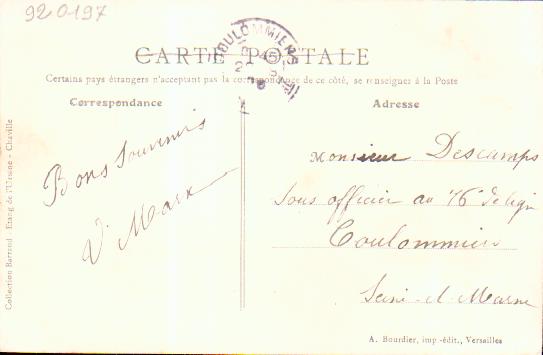 920197
COULOMMIERS
CARTE POSTALE
Certains pays étrangers n'acceptant pas la correspondance de ce côté, se renseigner à la Poste
Correspondance
Adresse
Bons souvenirs
V. Marx
Monsieur Descamps
Sous officier au 76e de lign
Coulommiers
Seine-et-Marne
Collection Bartrand - Etang de l'Ursine - Chaville
A. Bourdier, imp.-édit., Versailles